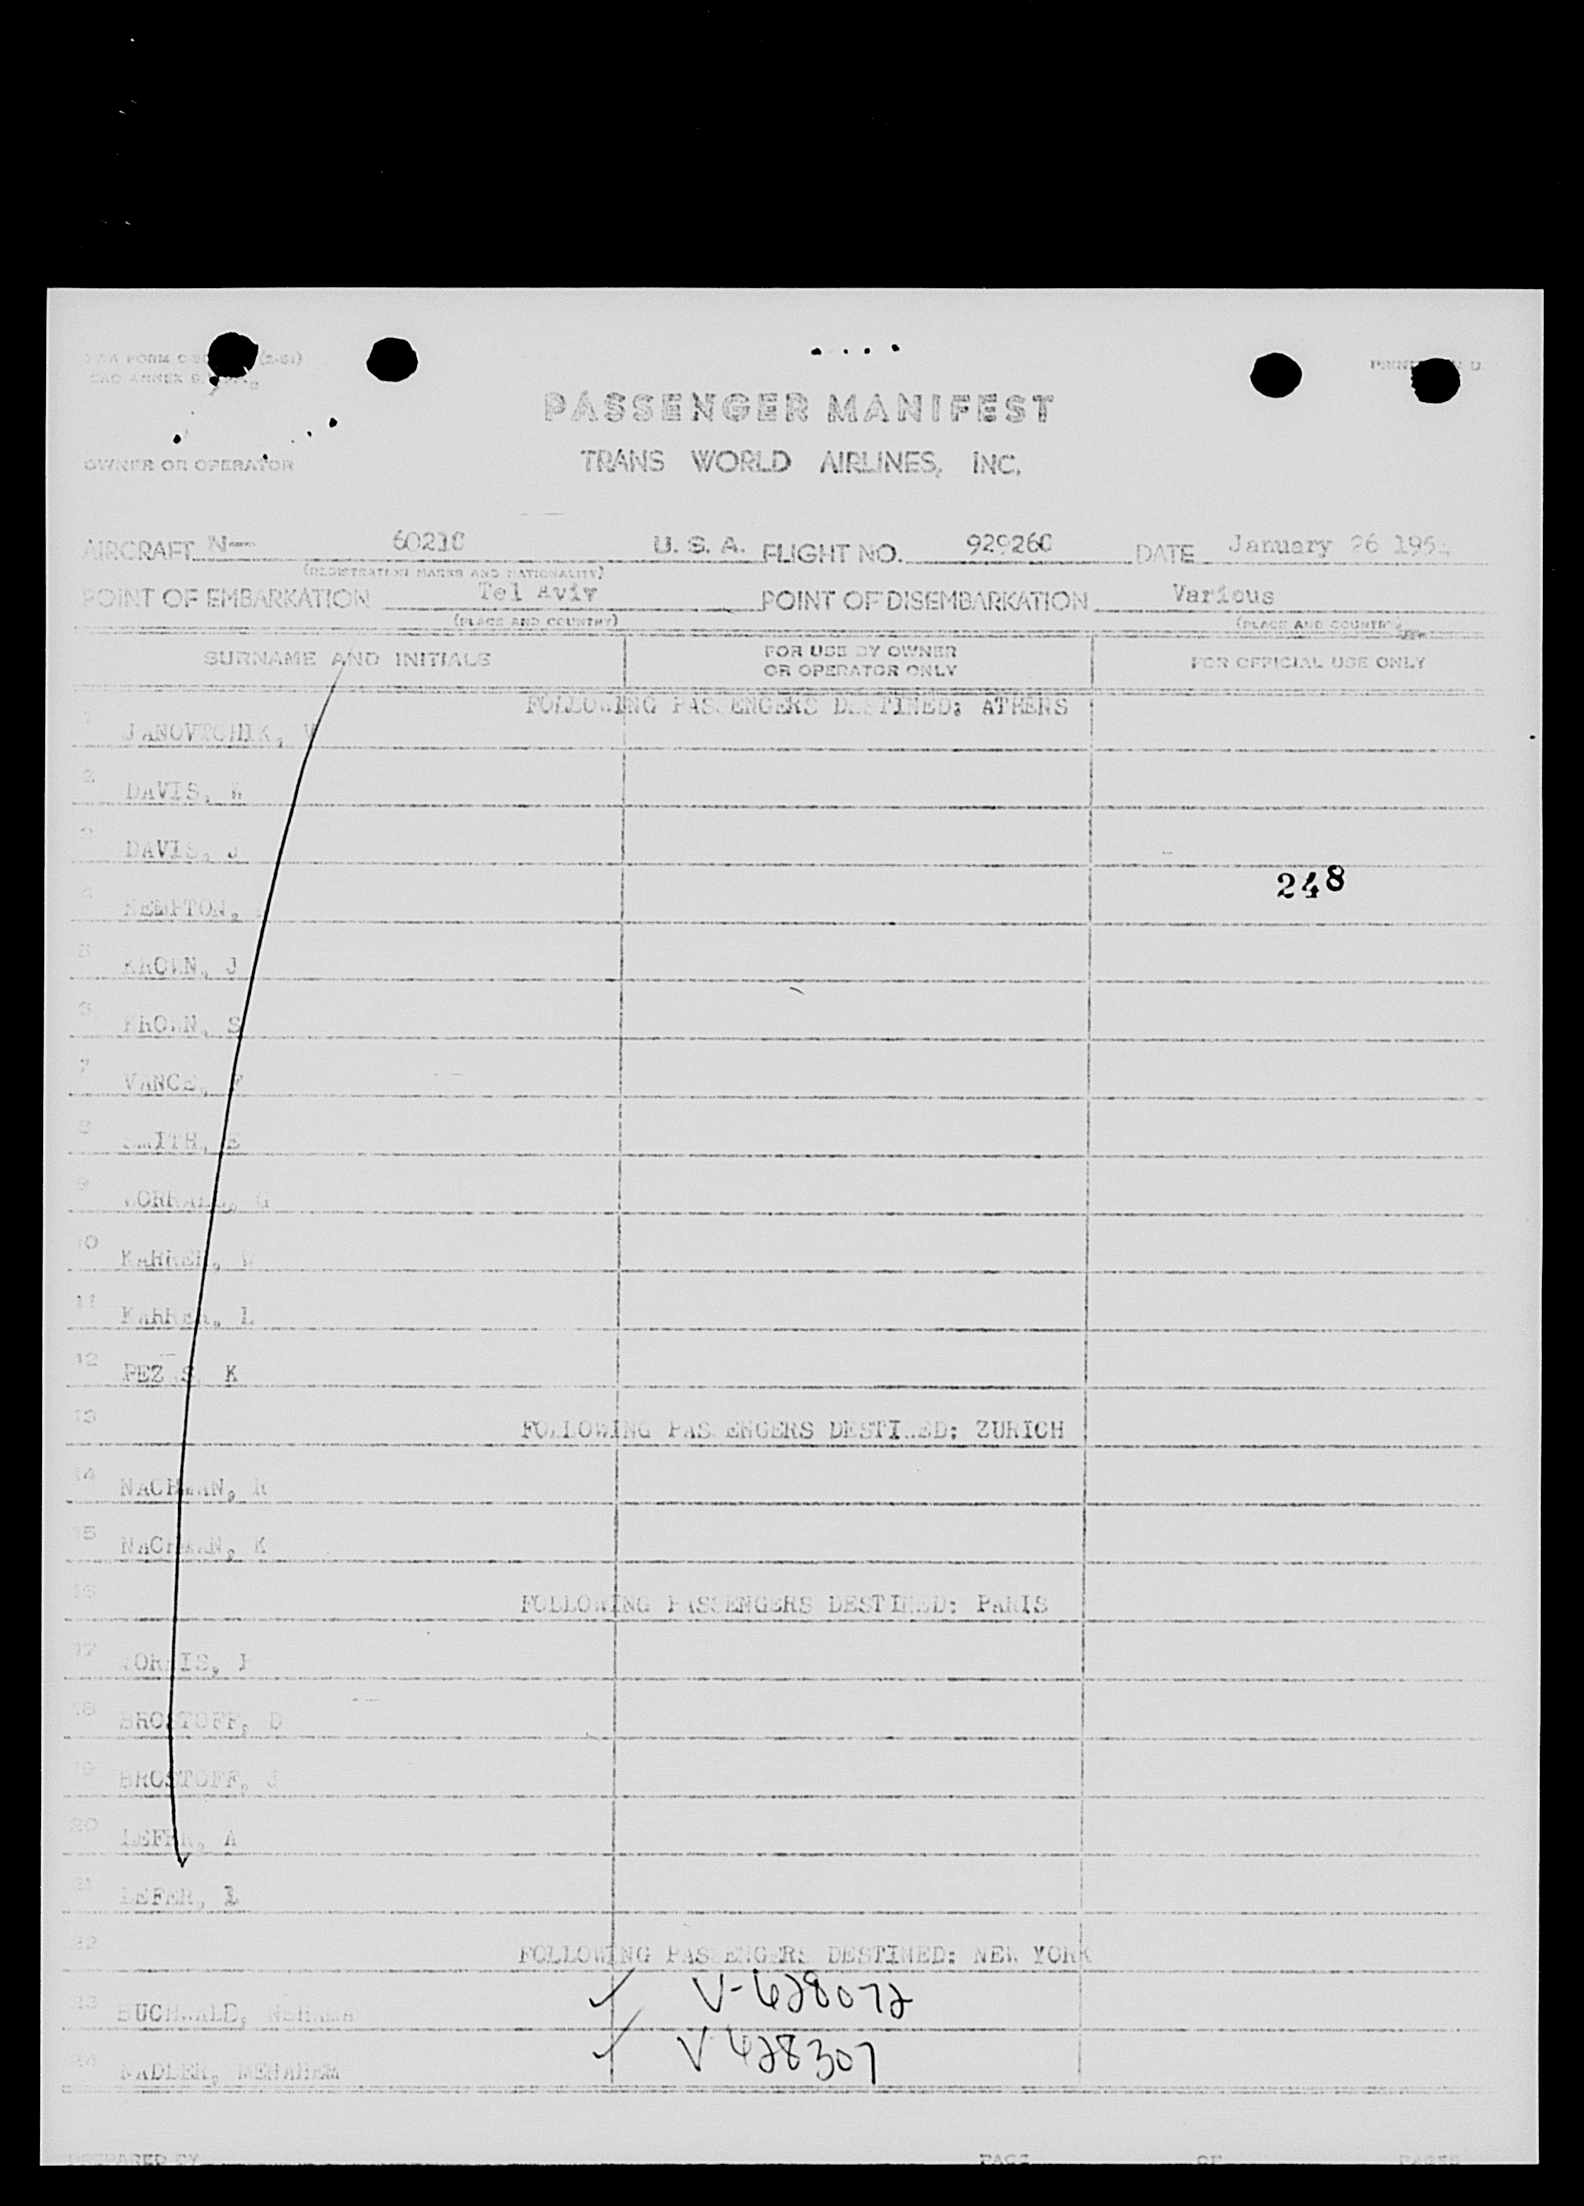 PASSENGER MANIFEST
TRANS WORLD AIRLINES, INC.
OWNER OR OPERATOR
AIRCRAFT N— 6021C U. S. A. FLIGHT NO. 929260 DATE January 26 195
(REGISTRATION MARKS AND NATIONALITY)
POINT OF EMBARKATION Tel Aviv POINT OF DISEMBARKATION Various
(PLACE AND COUNTRY) (PLACE AND COUNTRY)
SURNAME AND INITIALS FOR USE BY OWNER OR OPERATOR ONLY FOR OFFICIAL USE ONLY
FOLLOWING PASSENGERS DESTINED: ATHENS
1 JANOVTCHIK, V
2 DAVIS, W
3 DAVIS, J
248
4 KEMPTON,
5 KROWN, J
6 KROWN, S
7 VANCE, F
8 SMITH, E
9 WORRALL, G
10 KARRER, W
11 KARRER, L
12 PEZ S K
13 FOLLOWING PASSENGERS DESTINED: ZURICH
14 NACHMAN, R
15 NACHMAN, K
16 FOLLOWING PASSENGERS DESTINED: PARIS
17
18 BROSTOFF, D
19 BROSTOFF, J
20 LEFER, A
21 LEFER, L
22 FOLLOWING PASSENGERS DESTINED: NEW YORK
23 BUCHWALD, NEHAMA ✓ V-628072
24 NADLER, MENAHEM ✓ V 428307
PREPARED BY PAGE OF PAGES